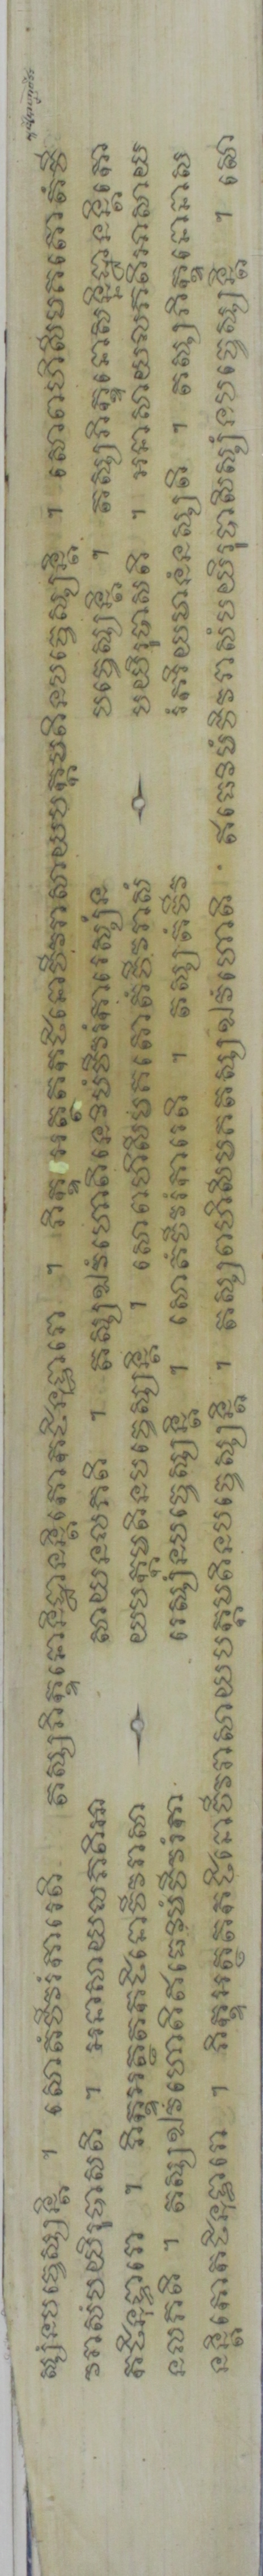 ស្សំនបច្ចេស្សន្តិ ។ សោតំចីវរំការេតិ តស្សភិក្ខុនោនិដ្ឋានន្តិកោកឋិនុទ្ធារោ ។ ភិក្ខុអត្ថតកឋិនោចីវរាសាយបក្កមតិនបច្ចេស្សន្តិ ។ សោពហិសីមគតោតំចី
វរាសំបយិរុបាសតិ ។ អនាសាយលភតិអាសាយនលភតិ ។ តស្សឯវំហោតិនេវិមំចីវរំការេស្សំនបច្ចេស្សន្តិ ។ តស្សភិក្ខុនោសន្និដ្ឋានន្តិកោ
កឋិនុទ្ធារោ ។ ភិក្ខុអត្ថតកឋិនោចីវរាសាយបក្កមតិនបច្ចេស្សន្តិ ។ សោពហិសីមគតោតំចីវរាសំបយិរុបាសតិ ។ អនាសាយលភតិអាសាយ
នលភតិ ។ តស្សឯវំហោតិឥធេវិមំចីវរំការេស្សំនបច្ចេស្សន្តិ ។ សោតំចីវរំការេតិ ។ តស្សតំចីវរំករិយមានំនស្សតិ ។ តស្សភិក្ខុនោនាស
នន្តិកោកឋិនុទ្ធារោ ។ ភិក្ខុអត្ថតកឋិនោចីវរាសាយបក្កមតិនបច្ចេស្សន្តិ ។ តស្សពហិសីមគតស្សឯវំហោតិ ឥធេវិមំចីវរាសំបយិរុបាសិស្សំនបច្ចេស្សន្តិ ។ សោ